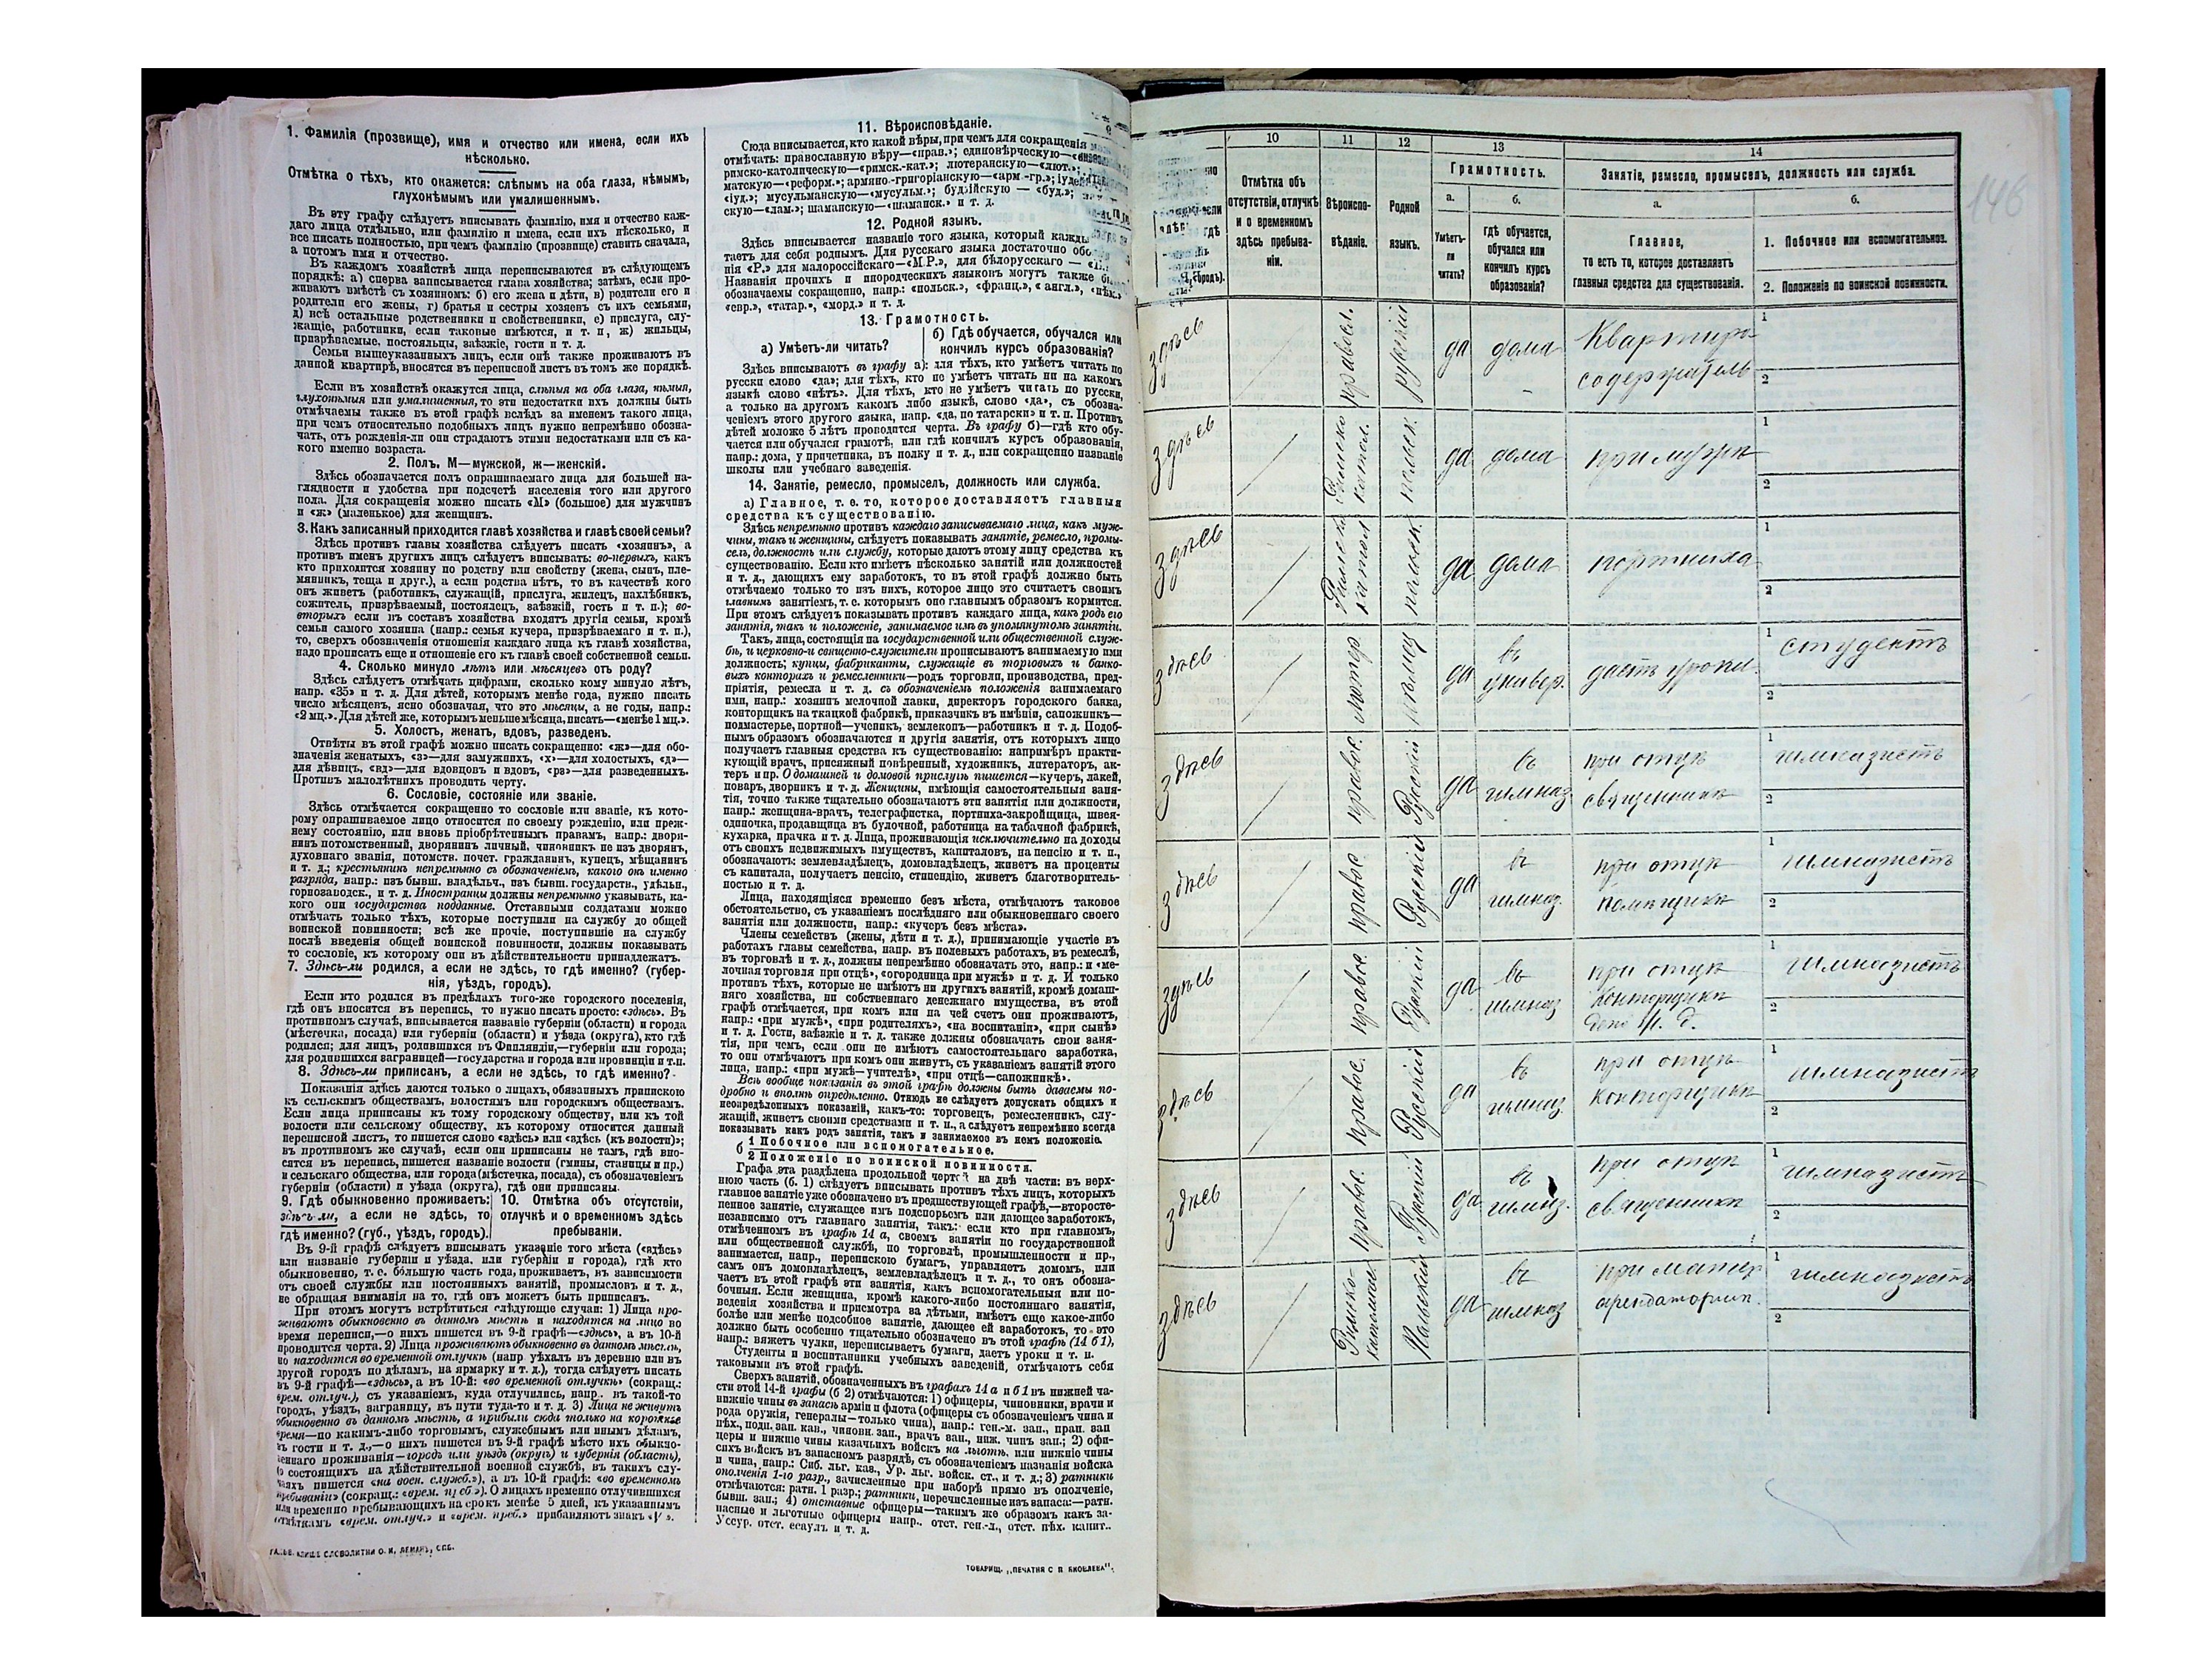 1. Фамилія (прозвище), имя и отчество или имена, если ихъ
нѣсколько.
Отмѣтка о тѣхъ, кто окажется: слѣпымъ на оба глаза, нѣмымъ,
глухонѣмымъ или умалишеннымъ.
Въ эту графу слѣдуетъ вписывать фамилію, имя и отчество каж-
даго лица отдѣльно, или фамилію и имена, если ихъ нѣсколько, и
все писать полностью, при чемъ фамилію (прозвище) ставить сначала,
а потомъ имя и отчество.
Въ каждомъ хозяйствѣ лица переписываются въ слѣдующемъ
порядкѣ: а) сперва записывается глава хозяйства; затѣмъ, если про-
живаютъ вмѣстѣ съ хозяиномъ: б) его жена и дѣти, в) родители его и
родители его жены, г) братья и сестры хозяевъ съ ихъ семьями,
д) всѣ остальные родственники и свойственники, е) прислуга, слу-
жащіе, работники, если таковые имѣются, и т. п, ж) жильцы,
призрѣваемые, постояльцы, заѣзжіе, гости и т. д.
Семьи вышеуказанныхъ лицъ, если онѣ также проживаютъ въ
данной квартирѣ, вносятся въ переписной листъ въ томъ же порядкѣ.
Если въ хозяйствѣ окажутся лица, слѣпыя на оба глаза, нѣмыя,
глухонѣмыя или умалишенныя, то эти недостатки ихъ должны быть
отмѣчаемы также въ этой графѣ вслѣдъ за именемъ такого лица,
при чемъ относительно подобныхъ лицъ нужно непремѣнно обозна-
чать, отъ рожденія-ли они страдаютъ этими недостатками или съ ка-
кого именно возраста.
2. Полъ. М—мужской, ж—женскій.
Здѣсь обозначается полъ опрашиваемаго лица для большей на-
глядности и удобства при подсчетѣ населенія того или другого
пола. Для сокращенія можно писать «М» (большое) для мужчинъ
и «ж» (маленькое) для женщинъ.
3. Какъ записанный приходится главѣ хозяйства и главѣ своей семьи?
Здѣсь противъ главы хозяйства слѣдуетъ писать «хозяинъ», а
противъ именъ другихъ лицъ слѣдуетъ вписывать: во-первыхъ, какъ
кто приходится хозяину по родству или свойству (жена, сынъ, пле-
мянникъ, теща и друг.), а если родства нѣтъ, то въ качествѣ кого
онъ живетъ (работникъ, служащій, прислуга, жилецъ, нахлѣбникъ,
сожитель, призрѣваемый, постоялецъ, заѣзжій, гость и т. п.); во-
вторыхъ если въ составъ хозяйства входятъ другія семьи, кромѣ
семьи самого хозяина (напр.: семья кучера, призрѣваемаго и т. п.),
то, сверхъ обозначенія отношенія каждаго лица къ главѣ хозяйства,
надо прописать еще и отношеніе его къ главѣ своей собственной семьи.
4. Сколько минуло лѣтъ или мѣсяцевъ отъ роду?
Здѣсь слѣдуетъ отмѣчать цифрами, сколько кому минуло лѣтъ,
напр. «35» и т. д. Для дѣтей, которымъ менѣе года, нужно писать
число мѣсяцевъ, ясно обозначая, что это мѣсяцы, а не годы, напр.:
«2 мц.». Для дѣтей же, которымъ меньше мѣсяца, писать—«менѣе 1 мц.».
5. Холостъ, женатъ, вдовъ, разведенъ.
Отвѣты въ этой графѣ можно писать сокращенно: «ж»—для обо-
значенія женатыхъ, «з»—для замужнихъ, «х»—для холостыхъ, «д»—
для дѣвицъ, «вд»—для вдовцовъ и вдовъ, «рз»—для разведенныхъ.
Противъ малолѣтнихъ проводить черту.
6. Сословіе, состояніе или званіе.
Здѣсь отмѣчается сокращенно то сословіе или званіе, къ кото-
рому опрашиваемое лицо относится по своему рожденію, или преж-
нему состоянію, или вновь пріобрѣтеннымъ правамъ, напр.: дворя-
нинъ потомственный, дворянинъ личный, чиновникъ не изъ дворянъ,
духовнаго званія, потомств. почет. гражданинъ, купецъ, мѣщанинъ
и т. д.; крестьянинъ непремѣнно съ обозначеніемъ, какого онъ именно
разряда, напр.: изъ бывш. владѣльч., изъ бывш. государств., удѣльн.,
горнозаводск., и т. д. Иностранцы должны непремѣнно указывать, ка-
кого они государства подданные. Отставными солдатами можно
отмѣчать только тѣхъ, которые поступили на службу до общей
воинской повинности; всѣ же прочіе, поступившіе на службу
послѣ введенія общей воинской повинности, должны показывать
то сословіе, къ которому они въ дѣйствительности принадлежатъ.
7. Здѣсь-ли родился, а если не здѣсь, то гдѣ именно? (губер-
нія, уѣздъ, городъ).
Если кто родился въ предѣлахъ того-же городского поселенія,
гдѣ онъ вносится въ перепись, то нужно писать просто: «здѣсь». Въ
противномъ случаѣ, вписывается названіе губерніи (области) и города
(мѣстечка, посада) или губерніи (области) и уѣзда (округа), кто гдѣ
родился; для лицъ, родившихся въ Финляндіи,—губерніи или города;
для родившихся заграницей—государства и города или провинціи и т.п.
8. Здѣсь-ли приписанъ, а если не здѣсь, то гдѣ именно?
Показанія здѣсь даются только о лицахъ, обязанныхъ припискою
къ сельскимъ обществамъ, волостямъ или городскимъ обществамъ.
Если лица приписаны къ тому городскому обществу, или къ той
волости или сельскому обществу, къ которому относится данный
переписной листъ, то пишется слово «здѣсь» или «здѣсь (къ волости)»;
въ противномъ же случаѣ, если они приписаны не тамъ, гдѣ вно-
сятся въ перепись, пишется названіе волости (гмины, станицы и пр.)
и сельскаго общества, или города (мѣстечка, посада), съ обозначеніемъ
губерніи (области) и уѣзда (округа), гдѣ они приписаны.
9. Гдѣ обыкновенно проживаетъ:
здѣсь-ли, а если не здѣсь, то
гдѣ именно? (губ., уѣздъ, городъ).
10. Отмѣтка объ отсутствіи,
отлучкѣ и о временномъ здѣсь
пребываніи.
Въ 9-й графѣ слѣдуетъ вписывать указаніе того мѣста («здѣсь»
или названіе губерніи и уѣзда, или губерніи и города), гдѣ кто
обыкновенно, т. е. бо́льшую часть года, проживаетъ, въ зависимости
отъ своей службы или постоянныхъ занятій, промысловъ и т. д.,
не обращая вниманія на то, гдѣ онъ можетъ быть приписанъ.
При этомъ могутъ встрѣтиться слѣдующіе случаи: 1) Лица про-
живаютъ обыкновенно въ данномъ мѣстѣ и находятся на лицо во
время переписи,—о нихъ пишется въ 9-й графѣ—«здѣсь», а въ 10-й
проводится черта. 2) Лица проживаютъ обыкновенно въ данномъ мѣстѣ,
но находятся во временной отлучкѣ (напр уѣхалъ въ деревню или въ
другой городъ по дѣламъ, на ярмарку и т. д.), тогда слѣдуетъ писать
въ 9-й графѣ—«здѣсь», а въ 10-й: «во временной отлучкѣ» (сокращ.:
врем. отлуч.), съ указаніемъ, куда отлучились, напр. въ такой-то
городъ, уѣздъ, заграницу, въ пути туда-то и т. д. 3) Лица не живутъ
обыкновенно въ данномъ мѣстѣ, а прибыли сюда только на короткое
время—по какимъ-либо торговымъ, служебнымъ или инымъ дѣламъ,
въ гости и т. д.,—о нихъ пишется въ 9-й графѣ мѣсто ихъ обыкно-
веннаго проживанія—городъ или уѣздъ (округъ) и губернія (область),
(о состоящихъ на дѣйствительной военной службѣ, въ такихъ слу-
чаяхъ пишется «на воен. служб.»), а въ 10-й графѣ: «во временномъ
пребываніи» (сокращ.: «врем. преб.»). О лицахъ временно отлучившихся
или временно пребывающихъ на срокъ менѣе 5 дней, къ указаннымъ
отмѣткамъ «врем. отлуч.» и «врем. преб.» прибавляютъ знакъ «V».
СЛОВОЛИТНИ О. И. ЛЕМАНЪ, СПБ.
11. Вѣроисповѣданіе.
Сюда вписывается, кто какой вѣры, при чемъ для сокращенія
отмѣчать: православную вѣру—«прав.»; единовѣрческую—
римско-католическую—«римск.-кат.»; лютеранскую—«лют.»;
матскую—«реформ.»; армяно-григоріанскую—«арм.-гр.»;
«іуд.»; мусульманскую—«мусульм.»; буддійскую — «буд.»;
скую—«лам.»; шаманскую—«шаманск.» и т. д.
12. Родной языкъ.
Здѣсь вписывается названіе того языка, который
таетъ для себя роднымъ. Для русскаго языка достаточно
нія «Р.» для малороссійскаго—«М.Р.», для бѣлорусскаго —
Названія прочихъ и инородческихъ языковъ могутъ также
обозначаемы сокращенно, напр.: «польск.», «франц.», «англ.», «нѣм.»
«евр.», «татар.», «морд.» и т. д.
13. Грамотность.
а) Умѣетъ-ли читать?
б) Гдѣ обучается, обучался или
кончилъ курсъ образованія?
Здѣсь вписываютъ въ графу а): для тѣхъ, кто умѣетъ читать по
русски слово «да»; для тѣхъ, кто не умѣетъ читать ни на какомъ
языкѣ слово «нѣтъ». Для тѣхъ, кто не умѣетъ читать по русски,
а только на другомъ какомъ либо языкѣ, слово «да», съ обозна-
ченіемъ этого другого языка, напр. «да, по татарски» и т. п. Противъ
дѣтей моложе 5 лѣтъ проводится черта. Въ графу б)—гдѣ кто обу-
чается или обучался грамотѣ, или гдѣ кончилъ курсъ образованія,
напр.: дома, у причетника, въ полку и т. д., или сокращенно названіе
школы или учебнаго заведенія.
14. Занятіе, ремесло, промыселъ, должность или служба.
а) Главное, т. е. то, которое доставляетъ главныя
средства къ существованію.
Здѣсь непремѣнно противъ каждаго записываемаго лица, какъ муж-
чины, такъ и женщины, слѣдуетъ показывать занятіе, ремесло, промы-
селъ, должность или службу, которые даютъ этому лицу средства къ
существованію. Если кто имѣетъ нѣсколько занятій или должностей
и т. д., дающихъ ему заработокъ, то въ этой графѣ должно быть
отмѣчаемо только то изъ нихъ, которое лицо это считаетъ своимъ
главнымъ занятіемъ, т. е. которымъ оно главнымъ образомъ кормится.
При этомъ слѣдуетъ показывать противъ каждаго лица, какъ родъ его
занятія, такъ и положеніе, занимаемое имъ въ упомянутомъ занятіи.
Такъ, лица, состоящія на государственной или общественной служ-
бѣ, и церковно-и священно-служители прописываютъ занимаемую ими
должность; купцы, фабриканты, служащіе въ торговыхъ и банко-
выхъ конторахъ и ремесленники—родъ торговли, производства, пред-
пріятія, ремесла и т. д. съ обозначеніемъ положенія занимаемаго
ими, напр.: хозяинъ мелочной лавки, директоръ городского банка,
конторщикъ на ткацкой фабрикѣ, приказчикъ въ имѣніи, сапожникъ—
подмастерье, портной—ученикъ, землекопъ—работникъ и т. д. Подоб-
нымъ образомъ обозначаются и другія занятія, отъ которыхъ лицо
получаетъ главныя средства къ существованію: напримѣръ практи-
кующій врачъ, присяжный повѣренный, художникъ, литераторъ, ак-
теръ и пр. О домашней и домовой прислугѣ пишется—кучеръ, лакей,
поваръ, дворникъ и т. д. Женщины, имѣющія самостоятельныя заня-
тія, точно также тщательно обозначаютъ эти занятія или должности,
напр.: женщина-врачъ, телеграфистка, портниха-закройщица, швея-
одиночка, продавщица въ булочной, работница на табачной фабрикѣ,
кухарка, прачка и т. д. Лица, проживающія исключительно на доходы
отъ своихъ недвижимыхъ имуществъ, капиталовъ, на пенсію и т. п.,
обозначаютъ: землевладѣлецъ, домовладѣлецъ, живетъ на проценты
съ капитала, получаетъ пенсію, стипендію, живетъ благотворитель-
ностью и т. д.
Лица, находящіяся временно безъ мѣста, отмѣчаютъ таковое
обстоятельство, съ указаніемъ послѣдняго или обыкновеннаго своего
занятія или должности, напр.: «кучеръ безъ мѣста».
Члены семействъ (жены, дѣти и т. д.), принимающіе участіе въ
работахъ главы семейства, напр. въ полевыхъ работахъ, въ ремеслѣ,
въ торговлѣ и т. д., должны непремѣнно обозначать это, напр.: «ме-
лочная торговля при отцѣ», «огородница при мужѣ» и т. д. И только
противъ тѣхъ, которые не имѣютъ ни другихъ занятій, кромѣ домаш-
няго хозяйства, ни собственнаго денежнаго имущества, въ этой
графѣ отмѣчается, при комъ или на чей счетъ они проживаютъ,
напр.: «при мужѣ», «при родителяхъ», «на воспитаніи», «при сынѣ»
и т. д. Гости, заѣзжіе и т. д. также должны обозначать свои заня-
тія, при чемъ, если они не имѣютъ самостоятельнаго заработка,
то они отмѣчаютъ при комъ они живутъ, съ указаніемъ занятій этого
лица, напр.: «при мужѣ—учителѣ», «при отцѣ—сапожникѣ».
Всѣ вообще показанія въ этой графѣ должны быть даваемы по-
дробно и вполнѣ опредѣленно. Отнюдь не слѣдуетъ допускать общихъ и
неопредѣленныхъ показаній, какъ-то: торговецъ, ремесленникъ, слу-
жащій, живетъ своими средствами и т. п., а слѣдуетъ непремѣнно всегда
показывать какъ родъ занятія, такъ и занимаемое въ немъ положеніе.
б 1 Побочное или вспомогательное.
2 Положеніе по воинской повинности.
Графа эта раздѣлена продольной чертой на двѣ части: въ верх-
нюю часть (б. 1) слѣдуетъ вписывать противъ тѣхъ лицъ, которыхъ
главное занятіе уже обозначено въ предшествующей графѣ,—второсте-
пенное занятіе, служащее имъ подспорьемъ или дающее заработокъ,
независимо отъ главнаго занятія, такъ: если кто при главномъ,
отмѣченномъ въ графѣ 14 а, своемъ занятіи по государственной
или общественной службѣ, по торговлѣ, промышленности и пр.,
занимается, напр., перепискою бумагъ, управляетъ домомъ, или
самъ онъ домовладѣлецъ, землевладѣлецъ и т. д., то онъ обозна-
чаетъ въ этой графѣ эти занятія, какъ вспомогательныя или по-
бочныя. Если женщина, кромѣ какого-либо постояннаго занятія,
веденія хозяйства и присмотра за дѣтьми, имѣетъ еще какое-либо
болѣе или менѣе подсобное занятіе, дающее ей заработокъ, то это
должно быть особенно тщательно обозначено въ этой графѣ (14 б 1),
напр.: вяжетъ чулки, переписываетъ бумаги, даетъ уроки и т. п.
Студенты и воспитанники учебныхъ заведеній, отмѣчаютъ себя
таковыми въ этой графѣ.
Сверхъ занятій, обозначенныхъ въ графахъ 14 а и б 1 въ нижней ча-
сти этой 14-й графы (б 2) отмѣчаются: 1) офицеры, чиновники, врачи и
нижніе чины въ запасѣ арміи и флота (офицеры съ обозначеніемъ чина и
рода оружія, генералы—только чина), напр.: ген.-м. зап., прап. зап
пѣх., подп. зап. кав., чиновн. зап., врачъ зап., ниж. чинъ зап.; 2) офи-
церы и нижніе чины казачьихъ войскъ на льготѣ, или нижніе чины
сихъ войскъ въ запасномъ разрядѣ, съ обозначеніемъ названія войска
и чина, напр.: Сиб. льг. каз., Ур. льг. войск. ст., и т. д.; 3) ратники
ополченія 1-го разр., зачисленные при наборѣ прямо въ ополченіе,
отмѣчаются: ратн. 1 разр.; ратники, перечисленные изъ запаса:—ратн.
бывш. зап.; 4) отставные офицеры—такимъ же образомъ какъ за-
пасные и льготные офицеры напр.. отст. ген.-л., отст. пѣх. капит..
Уссур. отст. есаулъ и т. д.
ТОВАРИЩ. „ПЕЧАТНЯ С П ЯКОВЛЕВА".
146
10 11 12 13 14
Грамотность.
Занятіе, ремесло, промыселъ, должность или служба.
Отмѣтка объ
отсутствіи, отлучкѣ
и о временномъ
здѣсь пребыва-
ніи.
Вѣроиспо-
вѣданіе.
Родной
языкъ.
а.
Умѣетъ-
ли
читать?
б.
гдѣ обучается,
обучался или
кончилъ курсъ
образованія?
а.
Главное,
то есть то, которое доставляетъ
главныя средства для существованія.
б.
1. Побочное или вспомогательное.
2. Положеніе по воинской повинности.
здѣсь православ. русскій да дома Квартиро-
содержатель
1
2
здѣсь Римско
катол. польск. да дома при мужѣ
1
2
здѣсь Римско
катол польск. да дома портниха
1
2
здѣсь Лютер нѣмец да въ
универ. даетъ уроки.
1 студентъ
2
здѣсь правос. Русскій да въ
гимназ при отцѣ
священникѣ
1 гимназистъ
2
здѣсь правос Русскій да въ
гимназ. при отцѣ
помѣщикѣ
1 гимназистъ
2
здѣсь правос. Русскій да въ
гимназ при отцѣ
конторщикѣ
депо ж. д.
1 гимназистъ
2
здѣсь правос. Русскій да въ
гимназ. при отцѣ
конторщикѣ
1 гимназистъ
2
здѣсь правос. Русскій да въ
гимнз. при отцѣ
священникѣ
1 гимназистъ
2
здѣсь Римско-
католич. Польскій да въ
гимназ при матер
арендаторши.
1 гимназистъ
2